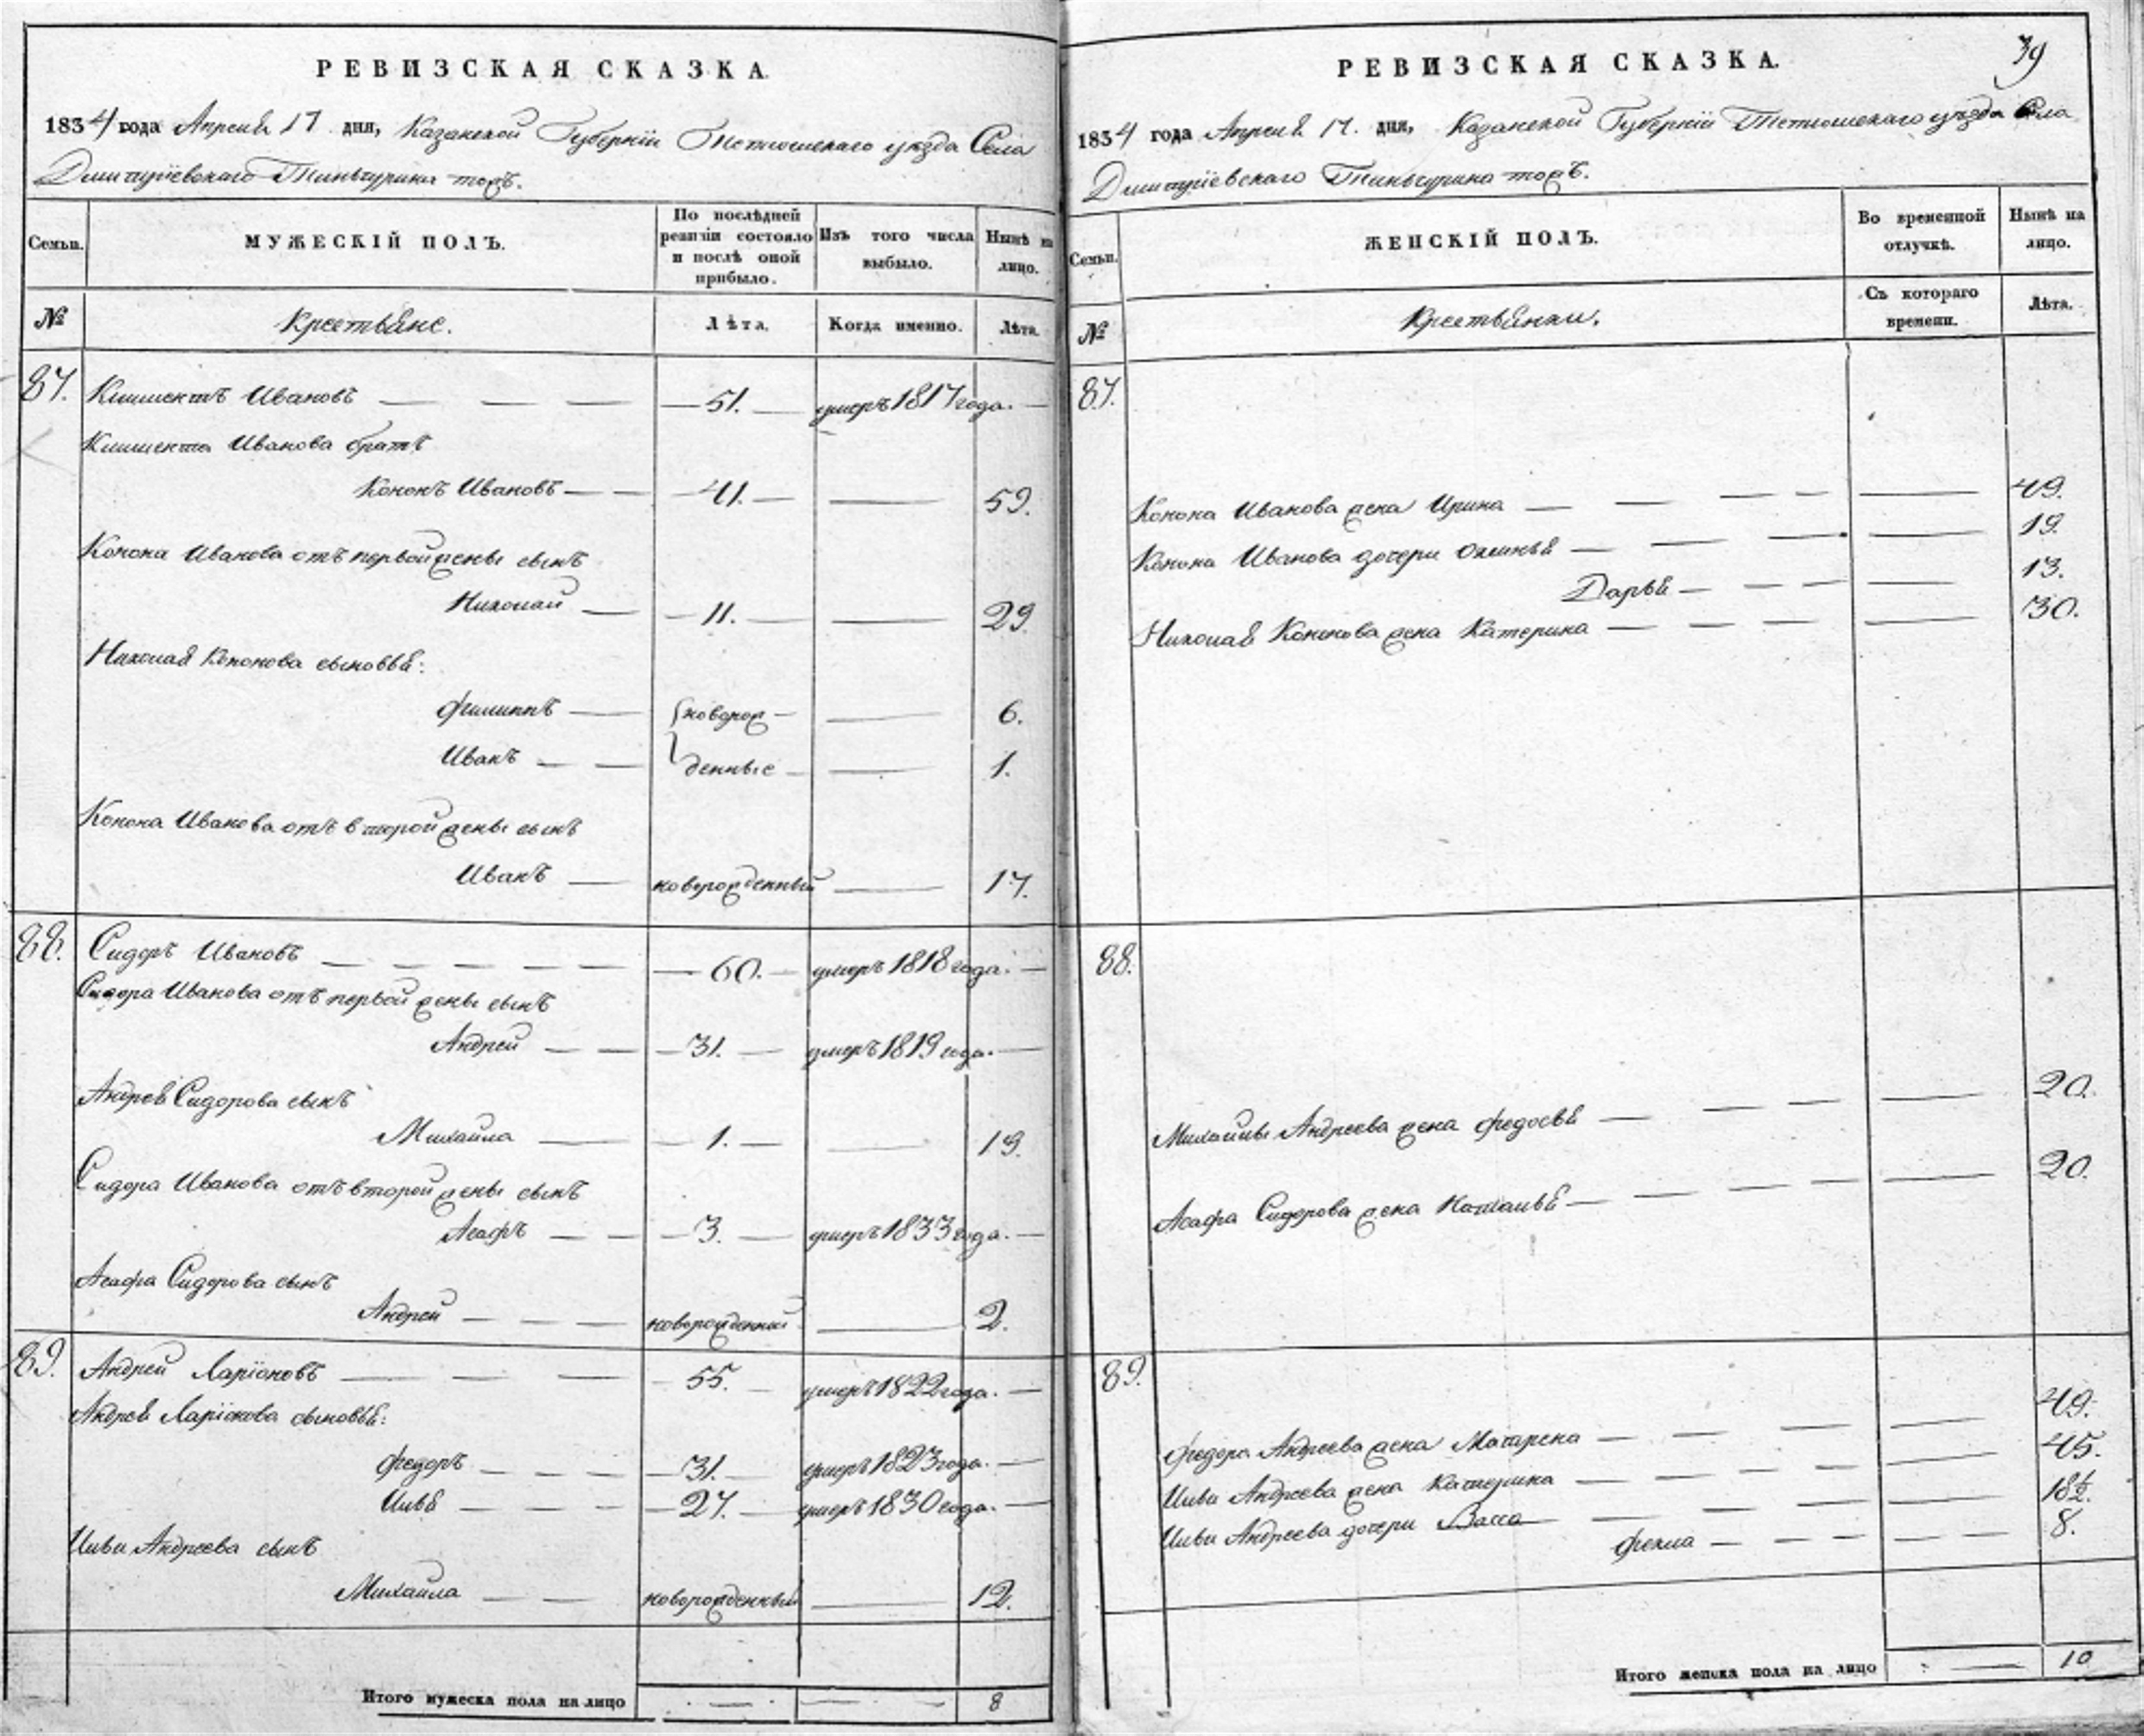 РЕВИЗСКАЯ СКАЗКА.
1834 года Апреля 17 дня, Казанской Губернiи Тетюшскаго уѣзда Села
Дмитрiевскаго Тиньчурина тожъ.
Семьи.
МУЖЕСКІЙ ПОЛЪ.
По послѣдней ревизіи состояло и послѣ оной прибыло.
Изъ того числа выбыло.
Нынѣ на лицо.
№
Крестьяне.
Лѣта.
Когда именно.
Лѣта.
87. Климентъ Ивановъ — 51. — умеръ 1817 года. —
Климента Иванова братъ
Кононъ Ивановъ — 41. — 59.
Конона Иванова отъ первой жены сынъ
Николай — 11. — 29.
Николая Кононова сыновья:
Филиппъ — новорож- — 6.
Иванъ — денные — 1.
Конона Иванова отъ второй жены сынъ
Иванъ — новорожденный — 17.
88. Сидоръ Ивановъ — 60. — умеръ 1818 года. —
Сидора Иванова отъ первой жены сынъ
Андрей — 31. — умеръ 1819 года. —
Андрея Сидорова сынъ
Михайла — 1. — 19.
Сидора Иванова отъ второй жены сынъ
Асафъ — 3. — умеръ 1833 года. —
Асафа Сидорова сынъ
Андрей — новорожденный — 2.
89. Андрей Ларiоновъ — 55. — умеръ 1822 года. —
Андрея Ларiонова сыновья:
Федоръ — 31. — умеръ 1823 года. —
Илья — 27. — умеръ 1830 года. —
Ильи Андреева сынъ
Михайла — новорожденный — 12.
Итого мужеска пола на лицо — — 8
39
РЕВИЗСКАЯ СКАЗКА.
1834 года Апреля 17. дня, Казанской Губернiи Тетюшскаго уѣзда Села
Дмитрiевскаго Тиньчурина тожъ.
Семьи.
ЖЕНСКІЙ ПОЛЪ.
Во временной отлучкѣ.
Нынѣ на лицо.
№
Крестьянки.
Съ котораго времени.
Лѣта.
87.
Конона Иванова жена Ирина — 49.
Конона Иванова дочери Оксинья — 19.
Дарья — 13.
Николая Кононова жена Катерина — 30.
88.
Михайлы Андреева жена Федосья — 20.
Асафа Сидорова жена Наталья — 20.
89.
Федора Андреева жена Матрена — 49.
Ильи Андреева жена Катерина — 45.
Ильи Андреева дочери Васса — 18½.
Фекла — 8.
Итого женска пола на лицо — 10